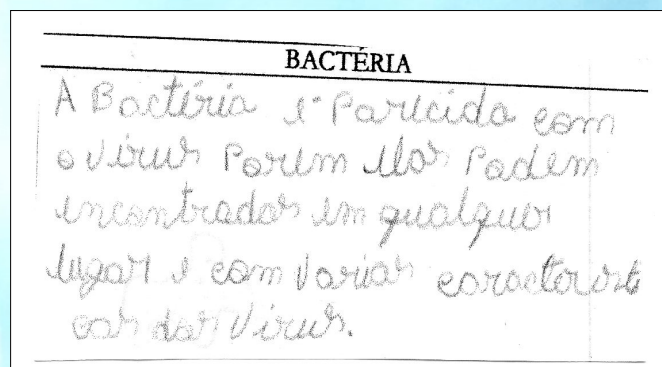 BACTÉRIA
A Bactéria é Parecida com
o vírus Porém elas Podem
encontradas em qualquer
lugar e com varias caracteristi
cas das Vírus.